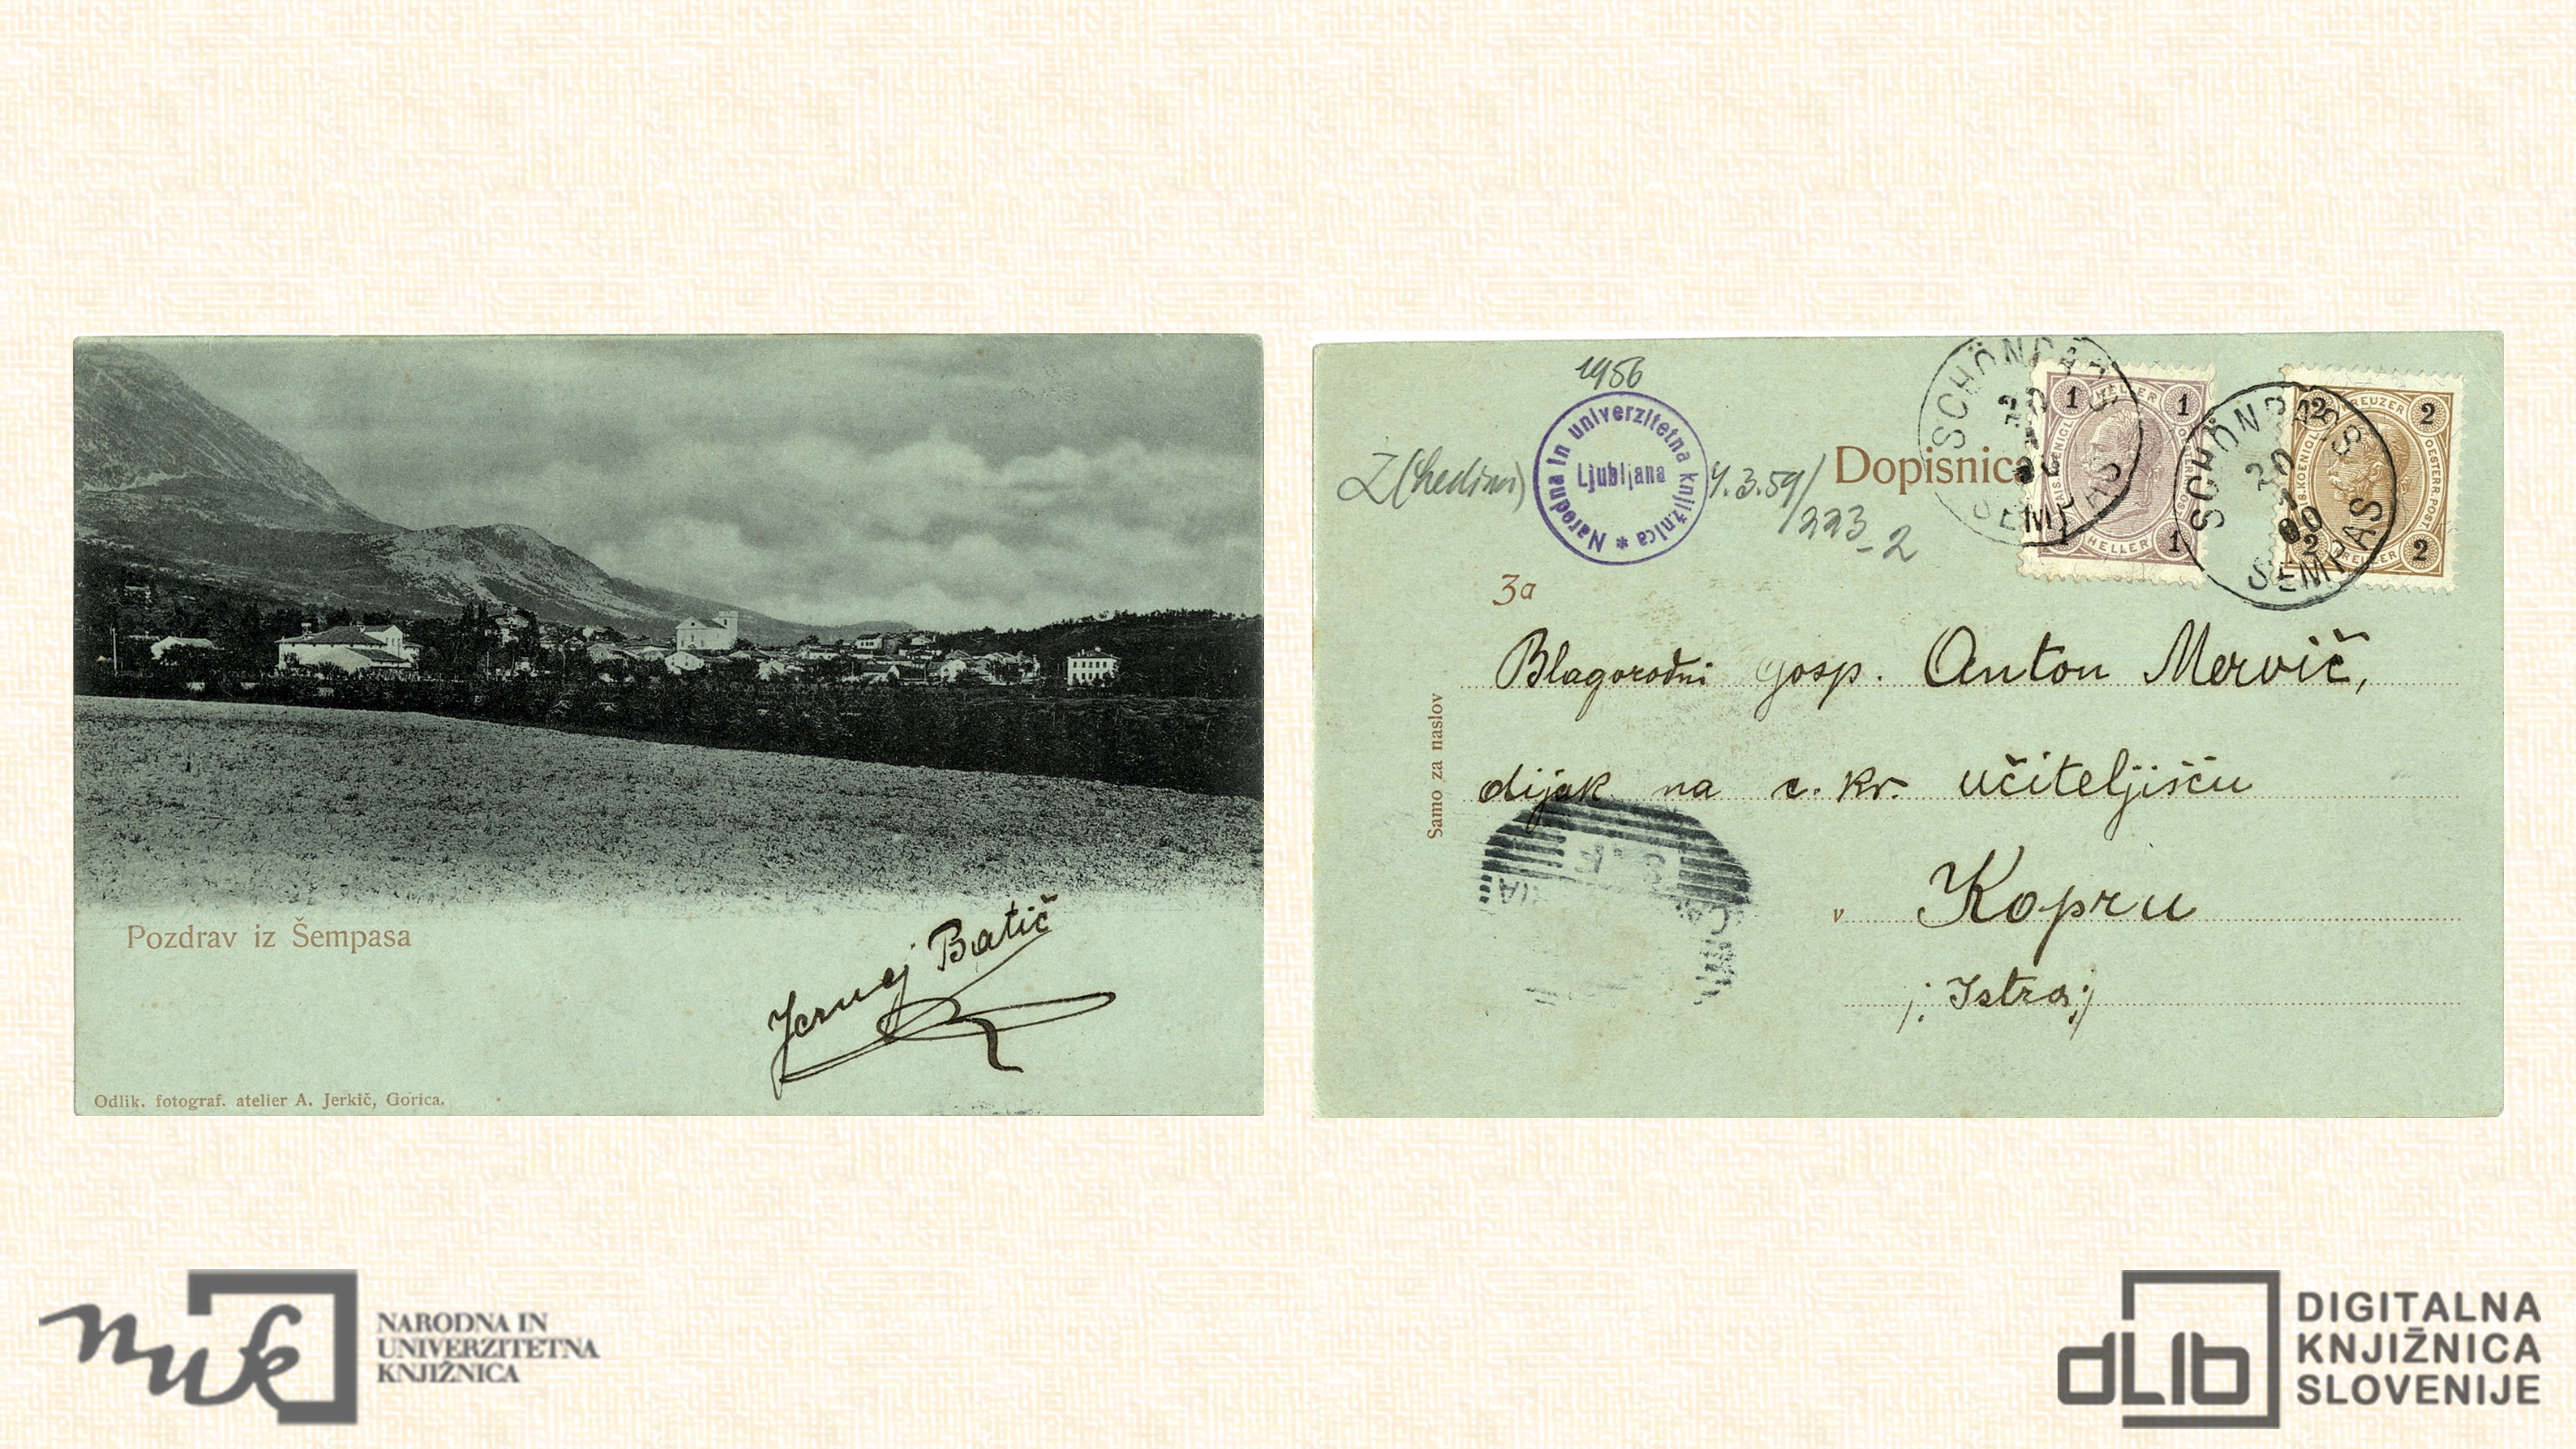 Pozdrav iz Šempasa
Jernej Batič
Odlik. fotograf. atelier A. Jerkič, Gorica.
1956
Narodna in univerzitetna knjižnica *
Ljubljana
4.3.59/
223-2
Dopisnica
SCHÖNPASS
20
1
ŠEMPAS
1 HELLER 1
1 HELLER 1
SCHÖNPASS
20
1
00
ŠEMPAS
2 KREUZER 2
OESTERR. POST.
2 KREUZER 2
Za
Blagorodni gosp. Anton Mervič,
Samo za naslov
dijak na c. kr. učiteljišču
v Kopru
/: Istra :/
nuk
NARODNA IN
UNIVERZITETNA
KNJIŽNICA
dLib
DIGITALNA
KNJIŽNICA
SLOVENIJE